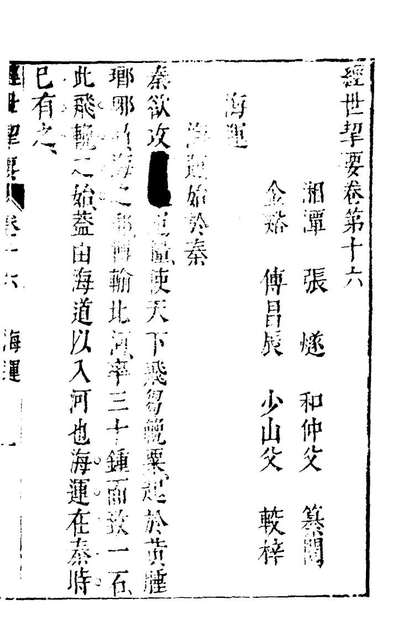 經世挈要卷第十六
湘潭 張 燧 和仲父 纂閱
金谿 傅昌辰 少山父 較梓
海運
海運始於秦
秦欲攻使天下飛芻輓粟起於黃腄
瑯琊負海之郡轉輸北河率三十鍾而致一石
此飛輓之始蓋由海道以入河也海運在秦時
已有之
經世挈要 卷十六 海運 一